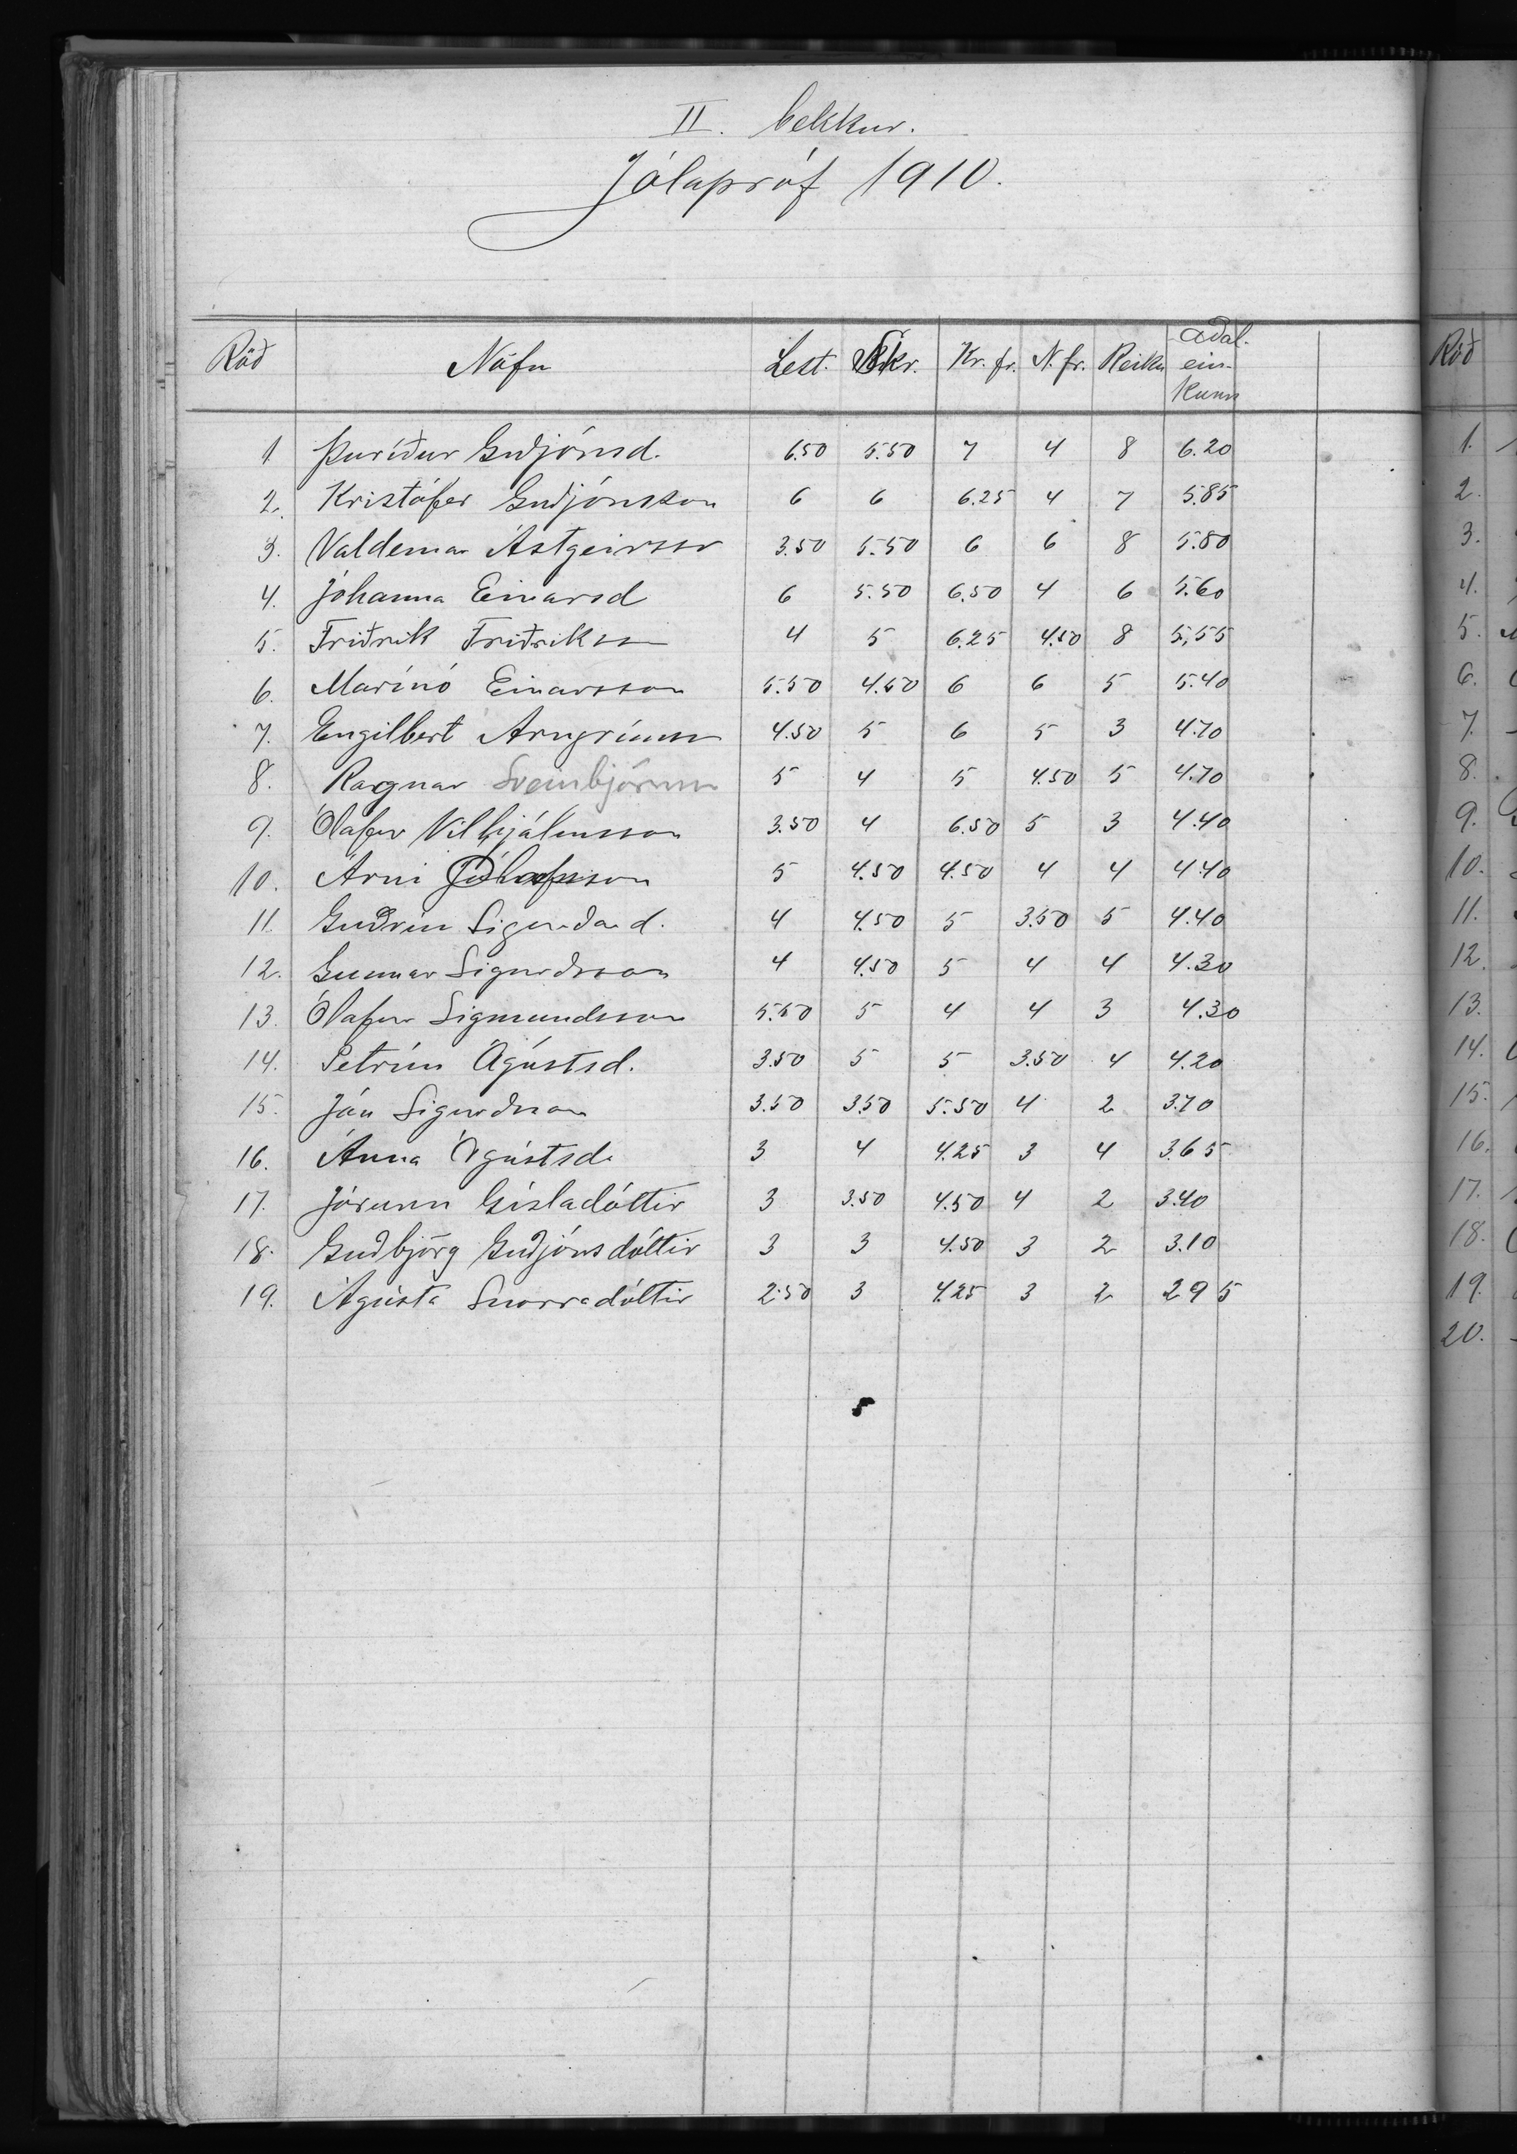 II. bekkur.
Jólapróf 1910.
Röð Nöfn Lest. Skr. Kr. fr. N. fr. Reikn aðal-ein-kunn
1. Þuríður Guðjónsd. 6.50 5.50 7 4 8 6.20
2. Kristófer Guðjónsson 6 6 6.25 4 7 5.85
3. Valdemar Ástgeirsson 3.50 5.50 6 6 8 5.80
4. Jóhanna Einarsd 6 5.50 6.50 4 6 5.60
5. Friðrik Friðriksson 4 5 6.25 4.50 8 5,55
6. Marínó Einarsson 5.50 4.50 6 6 5 5.40
7. Engilbert Arngrímsson 4.50 5 6 5 3 4.70
8. Ragnar Sveinbjörnsson 5 4 5 4.50 5 4.70
9. Ólafur Vilhjálmsson 3.50 4 6.50 5 3 4.40
10. Árni 5 4.50 4.50 4 4 4.40
11. Guðrún Sigurðard. 4 4.50 5 3.50 5 4.40
12. Gunnar Sigurðsson 4 4.50 5 4 4 4.30
13. Ólafur Sigmundsson 5.50 5 4 4 3 4.30
14. Petrún Ágústsd. 3.50 5 5 3.50 4 4.20
15. Jón Sigurðsson 3.50 3.50 5.50 4 2 3.70
16. Anna Ágústsd. 3 4 4.25 3 4 3.65
17. Jórunn Gísladóttir 3 3.50 4.50 4 2 3.40
18. Guðbjörg Guðjónsdóttir 3 3 4.50 3 2 3.10
19. Ágústa Snorradóttir 2.50 3 4.25 3 2 2 9 5
Röð
1.
2.
3.
4.
5.
6.
7.
8.
9.
10.
11.
12.
13.
14.
15.
16.
17.
18.
19.
20.